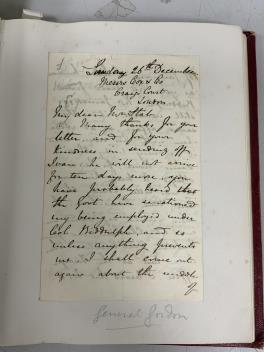 Sunday 26th December
Messrs Cox & Co
Craig's Court
London
My dear Mr Stab
Many thanks for your
letter and for your
kindness in sending off
Ivan he will not arrive
for ten days more, you
have probably heard that
the Govt have sanctioned
my being employed under
Col. Biddulph, and so
unless anything prevents
me I shall come out
again about the middle
of
General Gordon